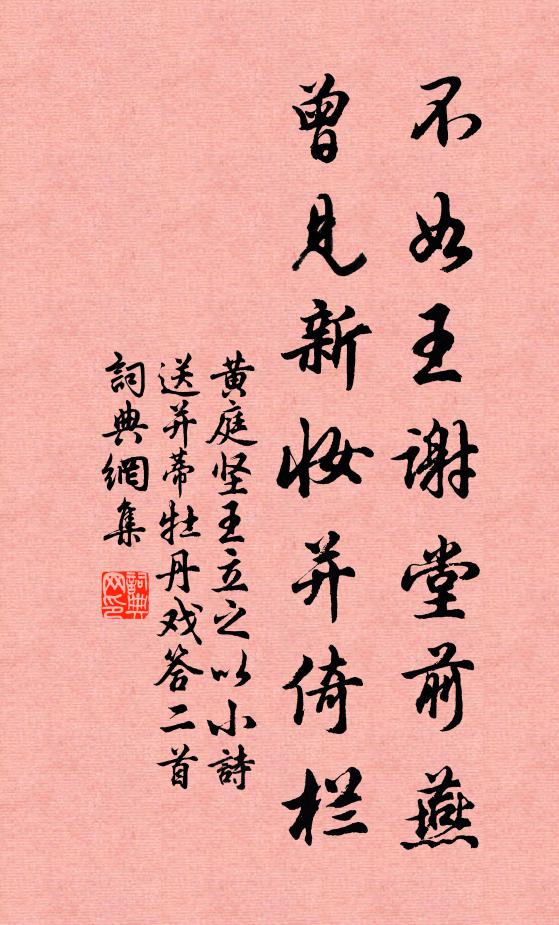 不如王谢堂前燕
曾见新妆并倚栏
黄庭坚王立之以小詩
送并蒂牡丹戏答二首
詞典網集
詞典网印